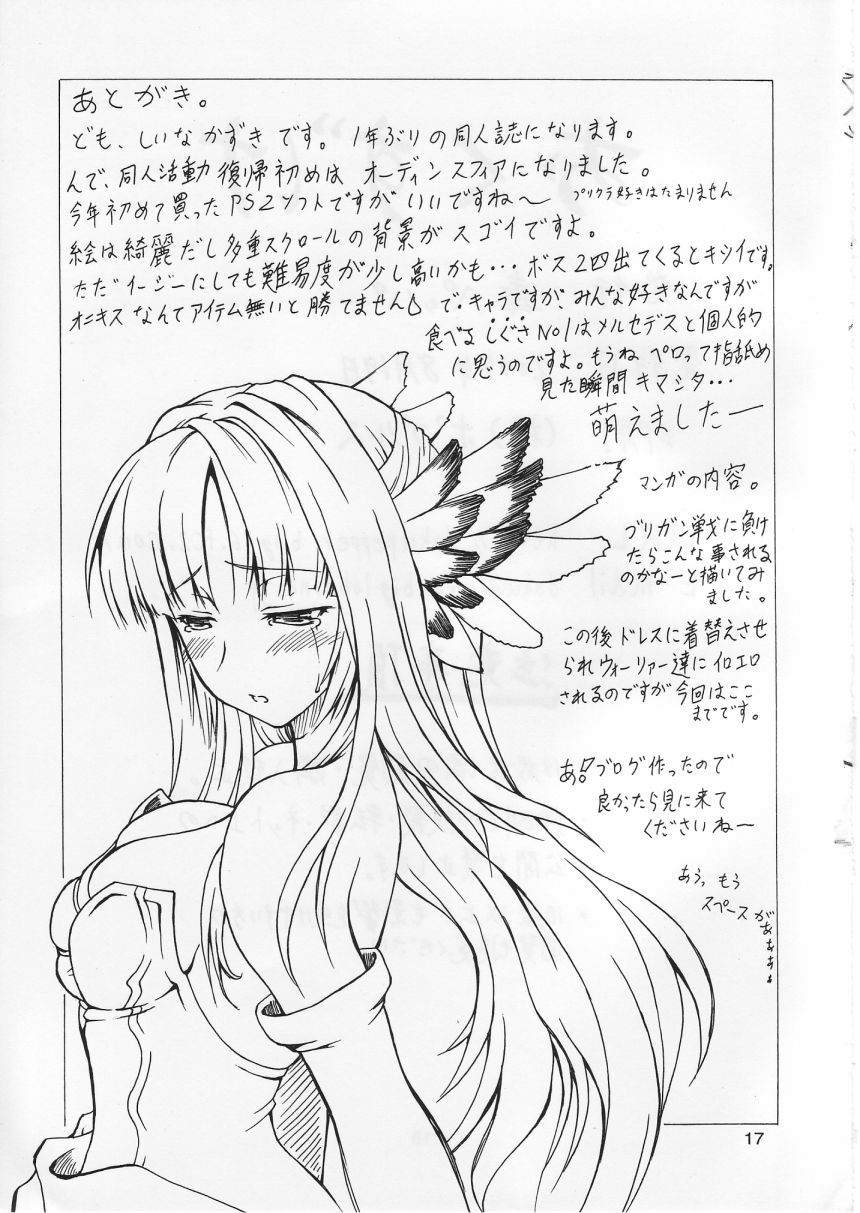 あとがき。
ども、しいなかずきです。1年ぶりの同人誌になります。
んで、同人活動復帰初めは オーディンスフィアになりました。
今年初めて買ったPS2ソフトですがいいですね～ プリクラ好きはたまりません
絵は綺麗だし多重スクロールの背景がスゴイですよ。
ただイージーにしても難易度が少し高いかも・・・ボス2匹出てくるとキツイです。
オニキスなんてアイテム無いと勝てませんし で・キャラですが、みんな好きなんですが
食べるしぐさNo1はメルセデスと個人的
に思うのですよ。もうね ペロって指舐め
見た瞬間キマシタ・・・
萌えましたー
マンガの内容。
ブリガン戦に負け
たらこんな事される
のかなーと描いてみ
ました。
この後ドレスに着替えさせ
られウォーリアー達にイロエロ
されるのですが今回はここ
までです。
あ!ブログ作ったので
良かったら見に来て
くださいね～
あぅ、もう
スペースがぁぁぁぁ
17